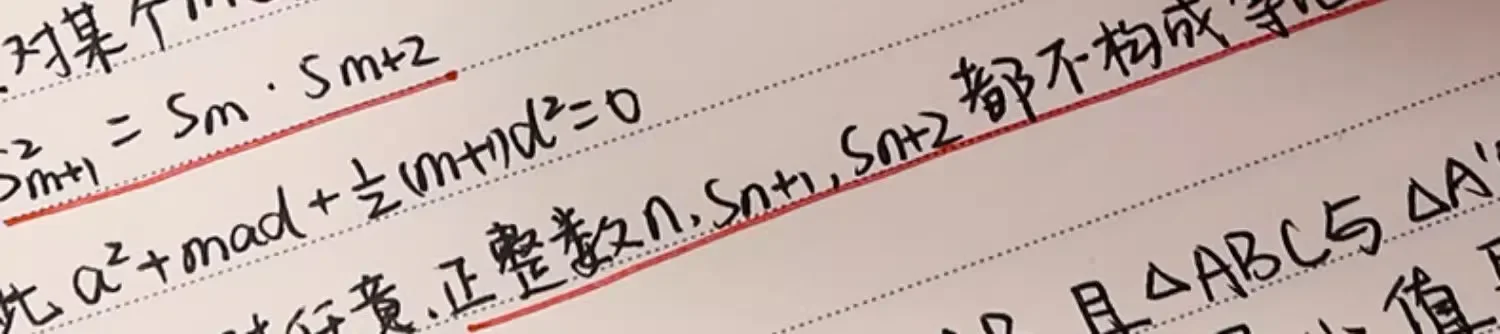 对某个
S²m+1 = Sm · Sm+2
此 a²+mad+½(m+1)d²=0
对任意正整数n, Sn+1, Sn+2都不构成等
且△ABC与△A'
值